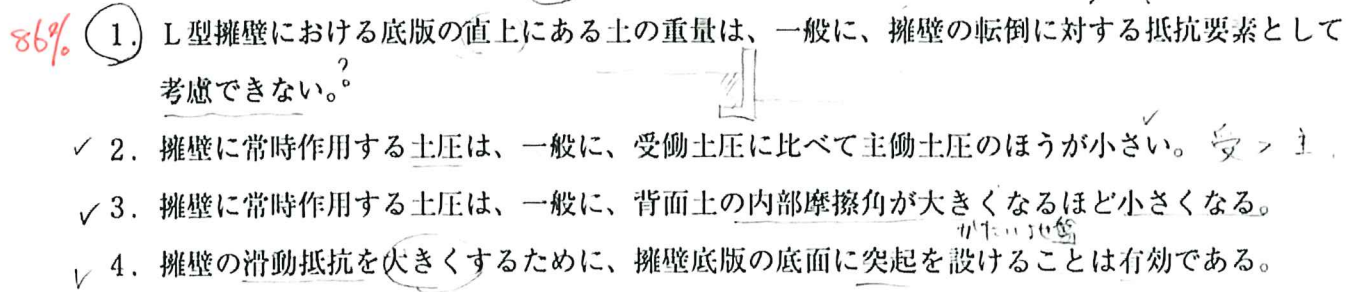 86% 1. L型擁壁における底版の直上にある土の重量は、一般に、擁壁の転倒に対する抵抗要素として
考慮できない。?
✓ 2. 擁壁に常時作用する土圧は、一般に、受働土圧に比べて主働土圧のほうが小さい。✓ 受 > 主.
✓ 3. 擁壁に常時作用する土圧は、一般に、背面土の内部摩擦角が大きくなるほど小さくなる。
かたい地盤
✓ 4. 擁壁の滑動抵抗を大きくするために、擁壁底版の底面に突起を設けることは有効である。